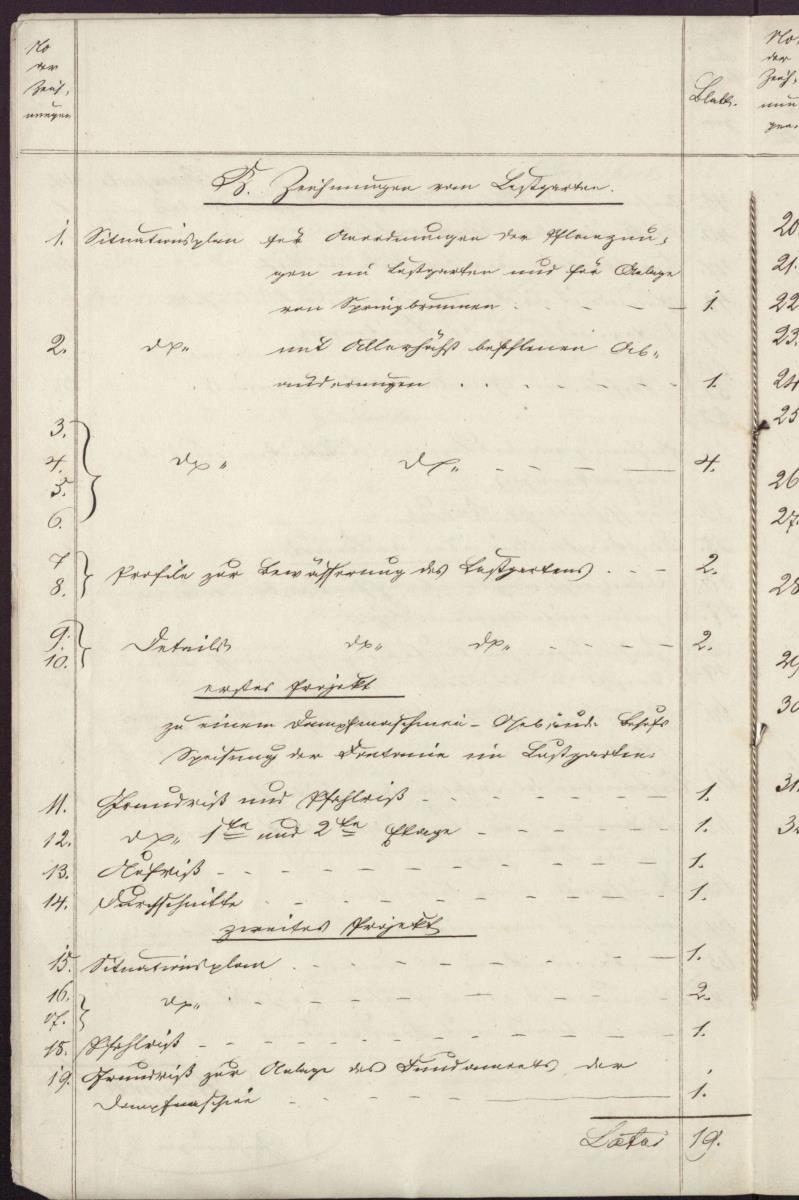 No
der
Zeich,
nungen
Blatt.
B. Zeichnungen vom Lustgarten.
1. Situationsplan für Anordnungen der Pflanzun,
gen im Lustgarten und für Anlage
von Springbrunnen 1.
2. do mit Allerhöchst befohlenen Ab,
änderungen 1.
3.
4. do do 4.
5.
6.
7
8. Profile zur Bewässerung des Lustgartens 2.
9.
10. Details do do 2.
erstes Projekt
zu einem Dampfmaschinen-Gebäude Behufs
Speisung der Fontaine im Lustgarten.
11. Grundriß und Pfahlriß 1.
12. do 1te und 2te Etage 1.
13. Aufriß 1.
14. Durchschnitte 1.
zweites Projekt
15. Situationsplan 1.
16.
17. do 2.
18. Pfahlriß 1.
19. Grundriß zur Anlage des Fundaments der
Dampfmaschine 1.
Latus 19.
No.
der
Zeich,
nun
gen.
20.
21.
22
23.
24
25
26
27.
28
29
30
31.